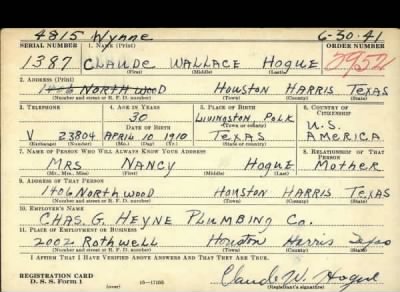 4815 Wynne 6-30-41
SERIAL NUMBER 1. NAME (Print) ORDER NUMBER
1387 CLAUDE WALLACE HOGUE 2952
(First) (Middle) (Last)
2. ADDRESS (Print)
1406 NORTH WOOD HOUSTON HARRIS TEXAS
(Number and street or R. F. D. number) (Town) (County) (State)
3. TELEPHONE 4. AGE IN YEARS 5. PLACE OF BIRTH 6. COUNTRY OF CITIZENSHIP
30 LIVINGSTON POLK
DATE OF BIRTH (Town or county) U.S.
V 23804 APRIL 10 1910 TEXAS AMERICA
(Exchange) (Number) (Mo.) (Day) (Yr.) (State or country)
7. NAME OF PERSON WHO WILL ALWAYS KNOW YOUR ADDRESS 8. RELATIONSHIP OF THAT PERSON
MRS NANCY HOGUE MOTHER
(Mr., Mrs., Miss) (First) (Middle) (Last)
9. ADDRESS OF THAT PERSON
1406 NORTH WOOD HOUSTON HARRIS TEXAS
(Number and street or R. F. D. number) (Town) (County) (State)
10. EMPLOYER'S NAME
CHAS. G. HEYNE PLUMBING CO.
11. PLACE OF EMPLOYMENT OR BUSINESS
2002 Rothwell Houston Harris Texas
(Number and street or R. F. D. number) (Town) (County) (State)
I AFFIRM THAT I HAVE VERIFIED ABOVE ANSWERS AND THAT THEY ARE TRUE.
REGISTRATION CARD
D. S. S. Form 1 (over) Claude W. Hogue
(Registrant's signature)